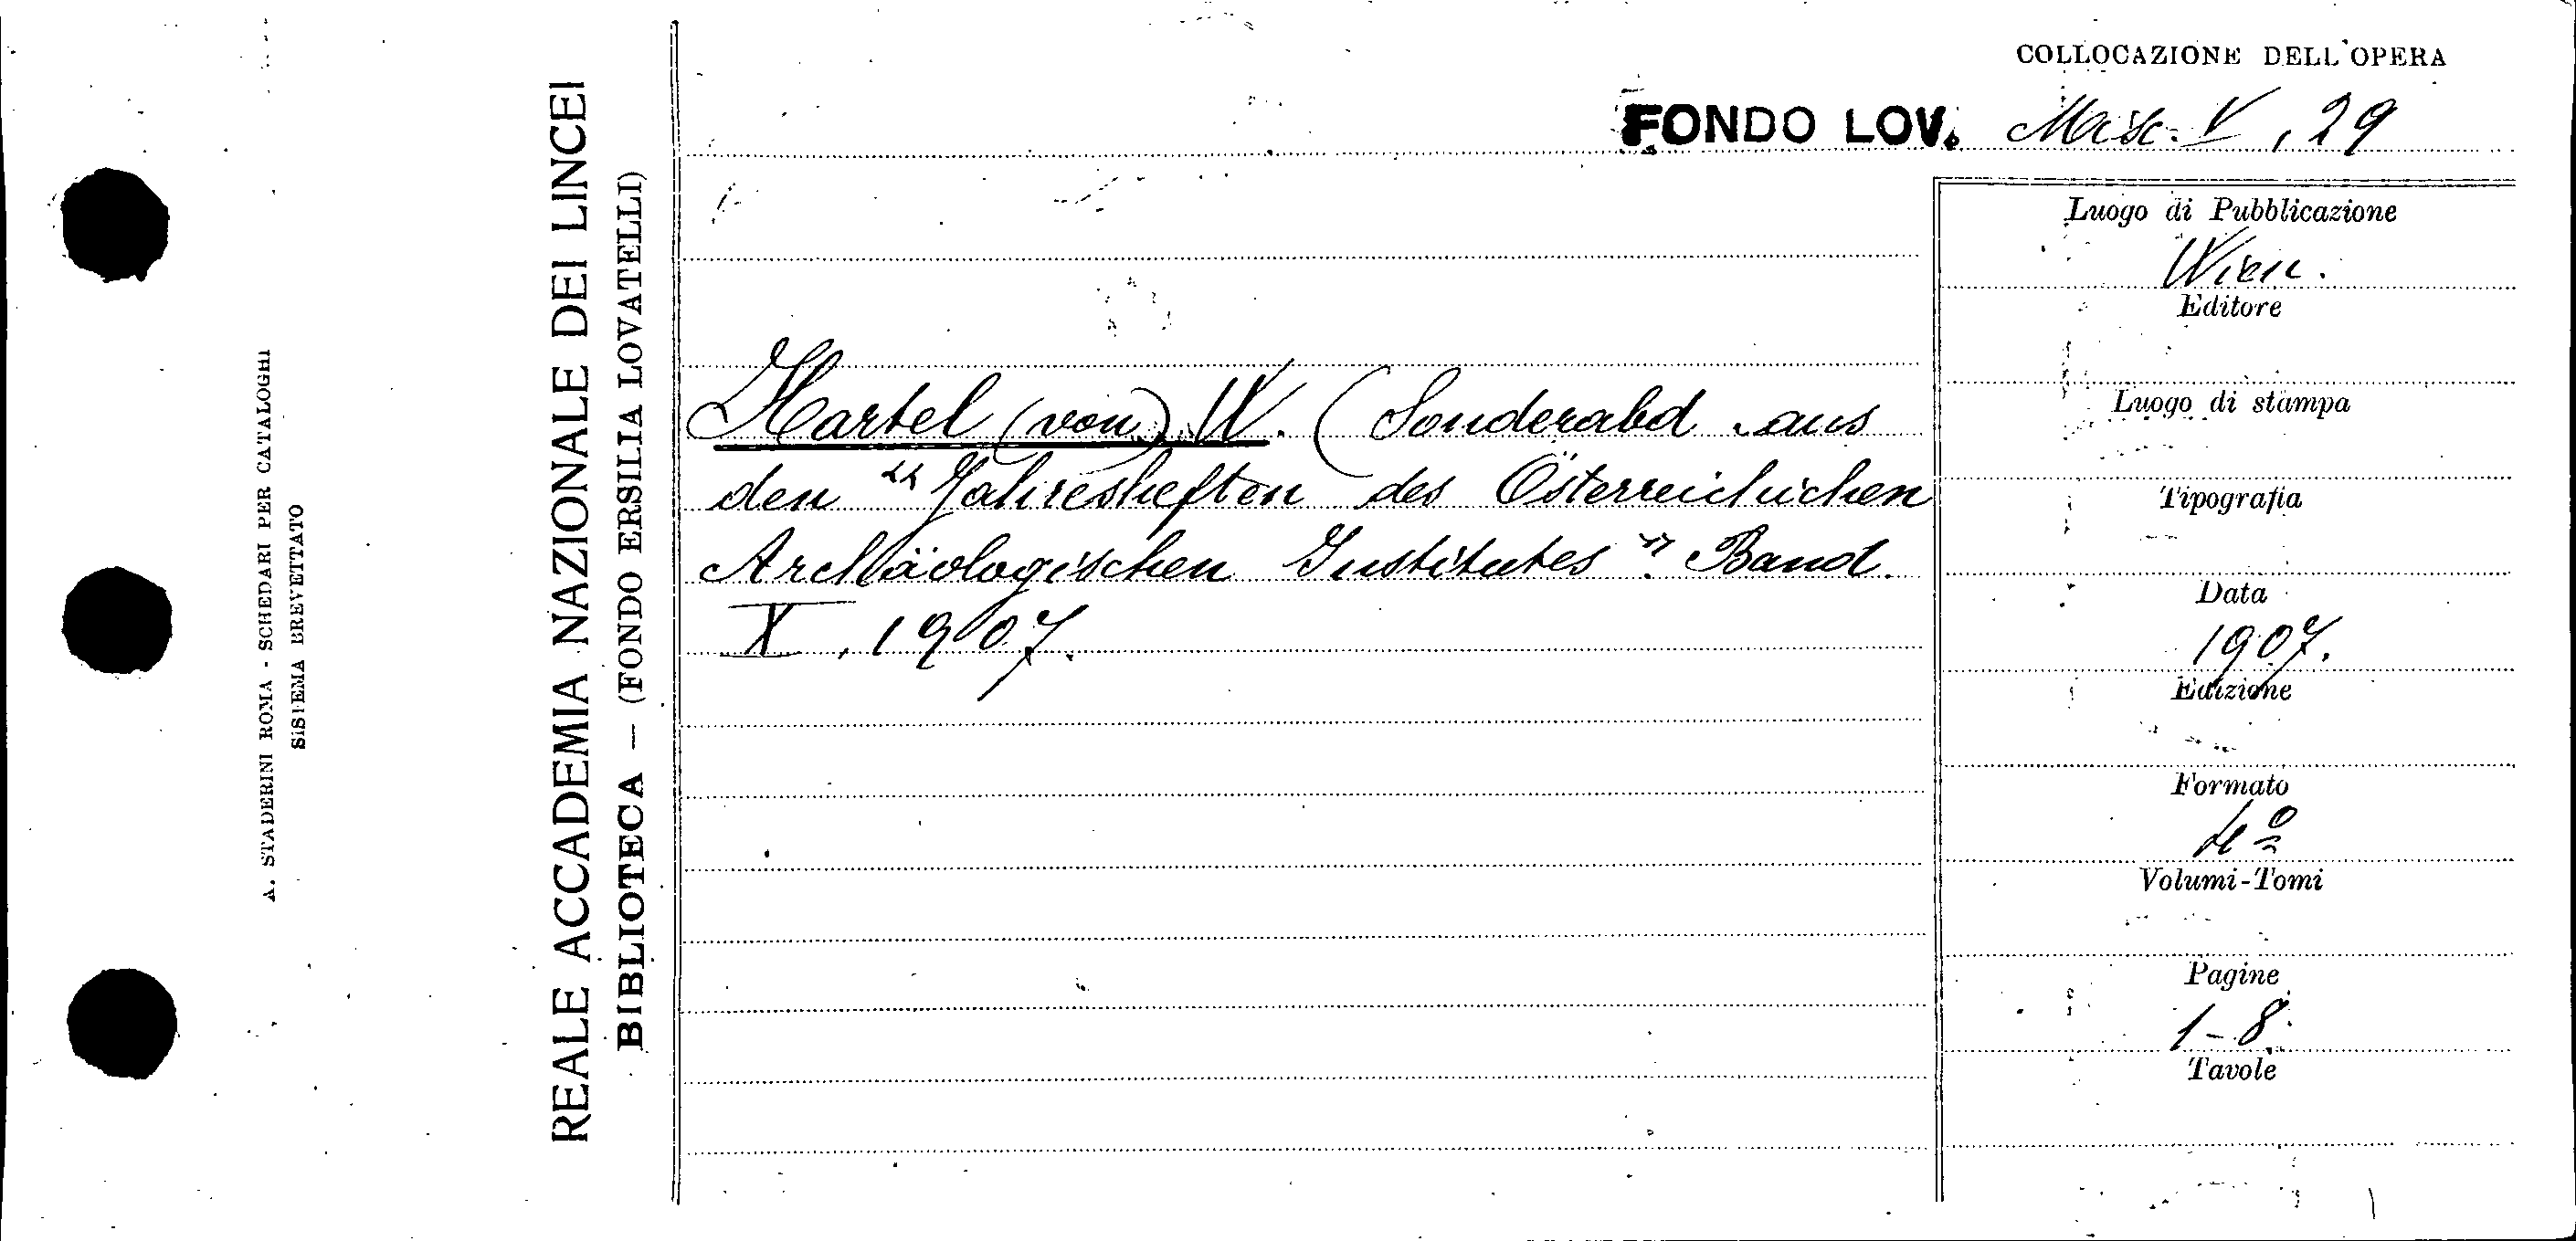 COLLOCAZIONE DELL'OPERA
FONDO LOV. Misc. V, 29
A. STADERINI ROMA - SCHEDARI PER CATALOGHI
SISTEMA BREVETTATO
REALE ACCADEMIA NAZIONALE DEI LINCEI
BIBLIOTECA — (FONDO ERSILIA LOVATELLI)
Hartel (von) W. (Sonderabd aus
den "Jahresheften des Österreichichen
Archäologischen Institutes" Band.
X, 1907.
Luogo di Pubblicazione
Wien.
Editore
Luogo di stampa
Tipografia
Data
1907.
Edizione
Formato
4º
Volumi-Tomi
Pagine
1-8.
Tavole